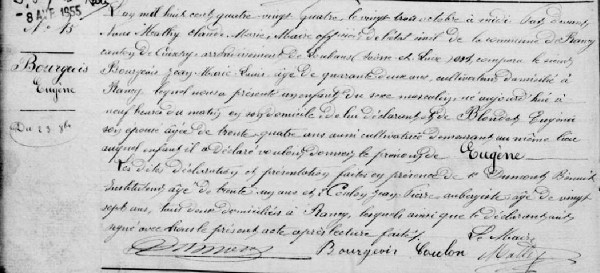 - 8 AVR 1955
N° 13
Bourgeois
Eugène
Du 23 8bre
L'an mil huit cent quatre vingt quatre, le vingt trois octobre à midi par devant
Nous Mathy Claude Marie Maire officier de l'état civil de la commune de Rancy
canton de Cuisery arrondissement de Louhans Saône et Loire, a comparu le sieur
Bourgeois Jean Marie Louis, âgé de quarante deux ans, cultivateur domicilié à
Rancy, lequel nous a présenté un enfant du sexe masculin, né aujourd'hui à
neuf heures du matin en son domicile de lui déclarant & de Blondet Eugénie
son épouse âgée de trente quatre ans aussi cultivatrice demeurant au même lieu
auquel enfant il a déclaré vouloir donner le prénom de Eugène
Les dites déclaration et présentation faites en présence de Dumont Benoît
instituteur âgé de trente un ans et Coulon Jean Pierre aubergiste âgé de vingt
sept ans, tous deux domiciliés à Rancy, lesquels ainsi que le déclarant ont
signé avec nous le présent acte après lecture faite.
Le Maire
Dumont Bourgeois Coulon Mathy